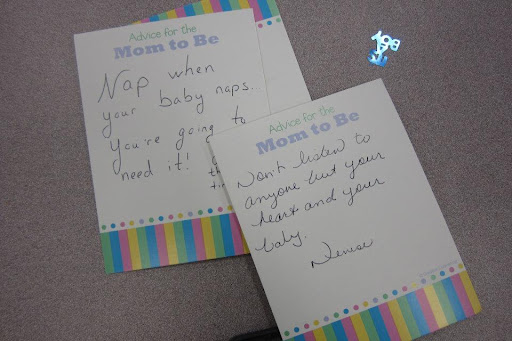 Advice for the
Mom to Be
Nap when
your baby naps.
You're going to
need it!
Advice for the
Mom to Be
Don't listen to
anyone but your
heart and your
baby.
Denise